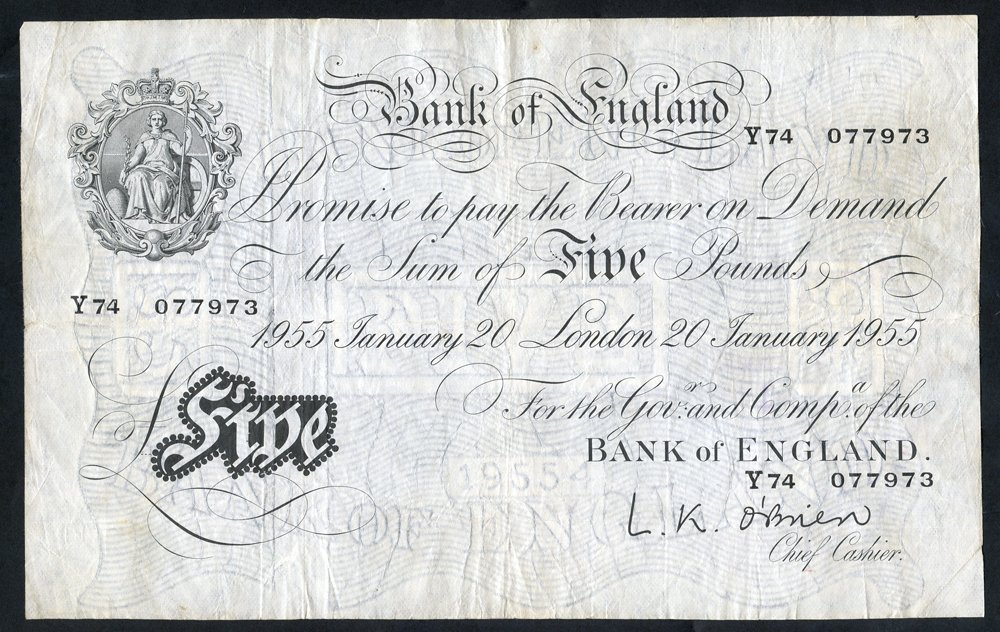 Bank of England
Y74 077973
I Promise to pay the Bearer on Demand
the Sum of Five Pounds
Y74 077973
1955 January 20 London 20 January 1955
For the Govr. and Compa. of the
£Five
BANK of ENGLAND.
Y74 077973
L. K. O'Brien
Chief Cashier.
1955
OF EN